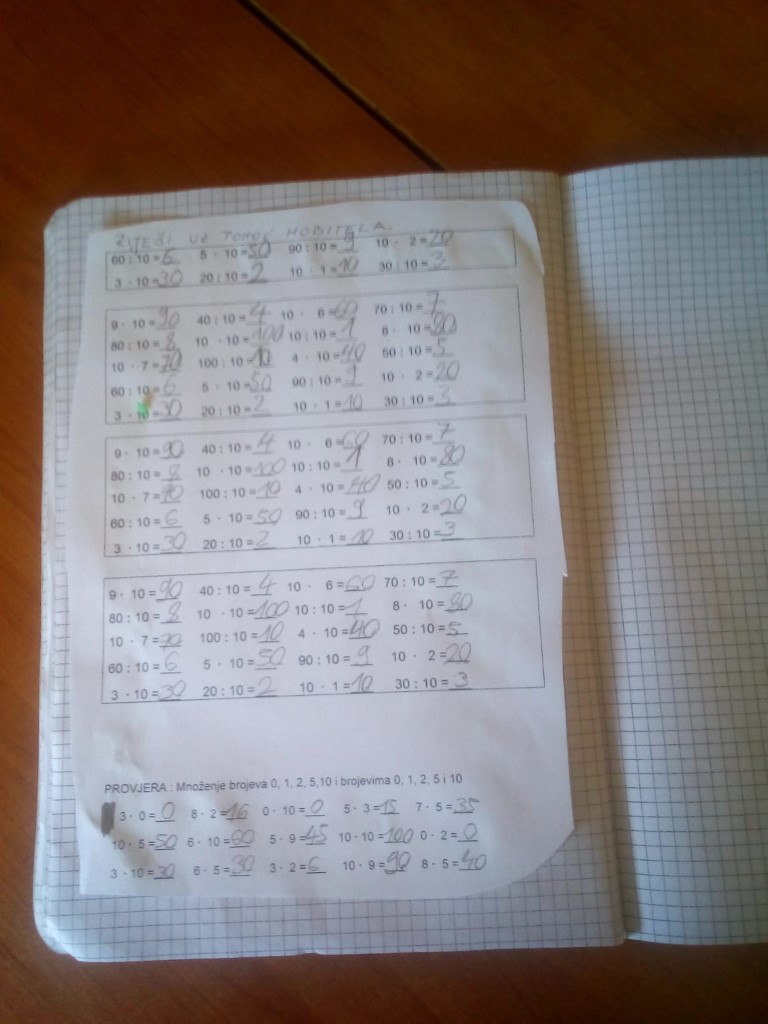 RIJEŠI UZ POMOĆ MOBITELA.
60 : 10 = 6 5 · 10 = 50 90 : 10 = 9 10 · 2 = 20
3 · 10 = 30 20 : 10 = 2 10 · 1 = 10 30 : 10 = 3
9 · 10 = 90 40 : 10 = 4 10 · 6 = 60 70 : 10 = 7
80 : 10 = 8 10 · 10 = 100 10 : 10 = 1 8 · 10 = 80
10 · 7 = 70 100 : 10 = 10 4 · 10 = 40 50 : 10 = 5
60 : 10 = 6 5 · 10 = 50 90 : 10 = 9 10 · 2 = 20
3 · 10 = 30 20 : 10 = 2 10 · 1 = 10 30 : 10 = 3
9 · 10 = 90 40 : 10 = 4 10 · 6 = 60 70 : 10 = 7
80 : 10 = 8 10 · 10 = 100 10 : 10 = 1 8 · 10 = 80
10 · 7 = 70 100 : 10 = 10 4 · 10 = 40 50 : 10 = 5
60 : 10 = 6 5 · 10 = 50 90 : 10 = 9 10 · 2 = 20
3 · 10 = 30 20 : 10 = 2 10 · 1 = 10 30 : 10 = 3
9 · 10 = 90 40 : 10 = 4 10 · 6 = 60 70 : 10 = 7
80 : 10 = 8 10 · 10 = 100 10 : 10 = 1 8 · 10 = 80
10 · 7 = 70 100 : 10 = 10 4 · 10 = 40 50 : 10 = 5
60 : 10 = 6 5 · 10 = 50 90 : 10 = 9 10 · 2 = 20
3 · 10 = 30 20 : 10 = 2 10 · 1 = 10 30 : 10 = 3
PROVJERA : Množenje brojeva 0, 1, 2, 5,10 i brojevima 0, 1, 2, 5 i 10
3 · 0 = 0 8 · 2 = 16 0 · 10 = 0 5 · 3 = 15 7 · 5 = 35
10 · 5 = 50 6 · 10 = 60 5 · 9 = 45 10 · 10 = 100 0 · 2 = 0
3 · 10 = 30 6 · 5 = 30 3 · 2 = 6 10 · 9 = 90 8 · 5 = 40